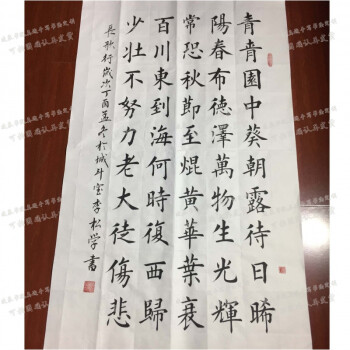 青青園中葵朝露待日晞
陽春布德澤萬物生光輝
常恐秋節至焜黃華葉衰
百川東到海何時復西歸
少壯不努力老大徒傷悲
長歌行歲次丁酉孟冬於城斗室李松学書